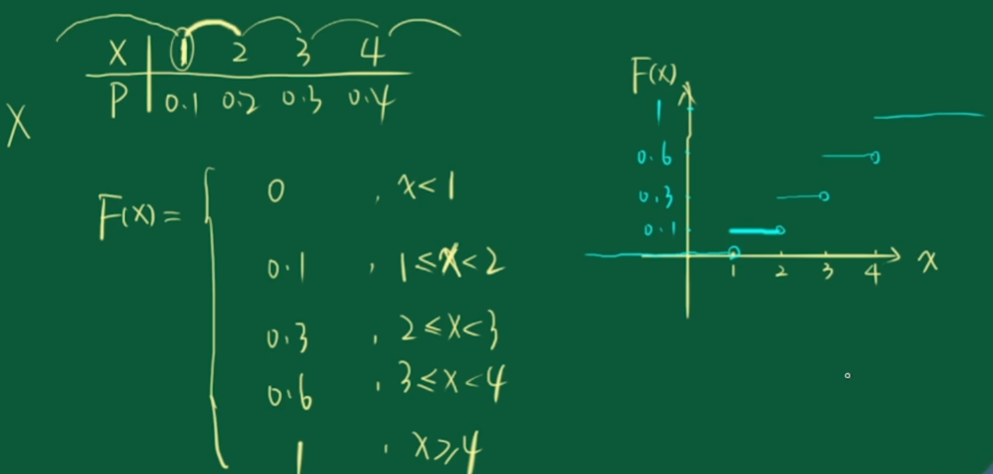 X 1 2 3 4
P 0.1 0.2 0.3 0.4
X
F(x) =
0 , x < 1
0.1 , 1 ≤ x < 2
0.3 , 2 ≤ x < 3
0.6 , 3 ≤ x < 4
1 , x ≥ 4
F(x)
1
0.6
0.3
0.1
1 2 3 4 x